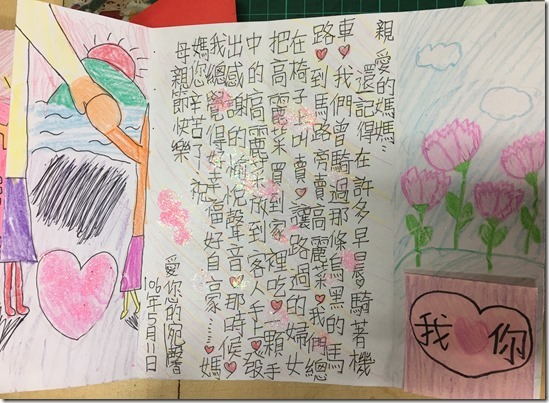 親愛的媽媽:
還記得在許多早晨騎著機
車,我們曾騎過那條烏黑的馬
路♥到馬路旁賣高麗菜♥我們總
在椅子上出賣♥讓路過的婦女
把高麗菜買到家裡吃♥一顆手
中的高麗菜放到客人手上♥發
出感謝的愉悅聲音♥那時候♥
我總覺得好幸福好自豪……♥媽
媽您辛苦了♥祝
母親節快樂
愛您的宛馨
106年5月11日
我♥你